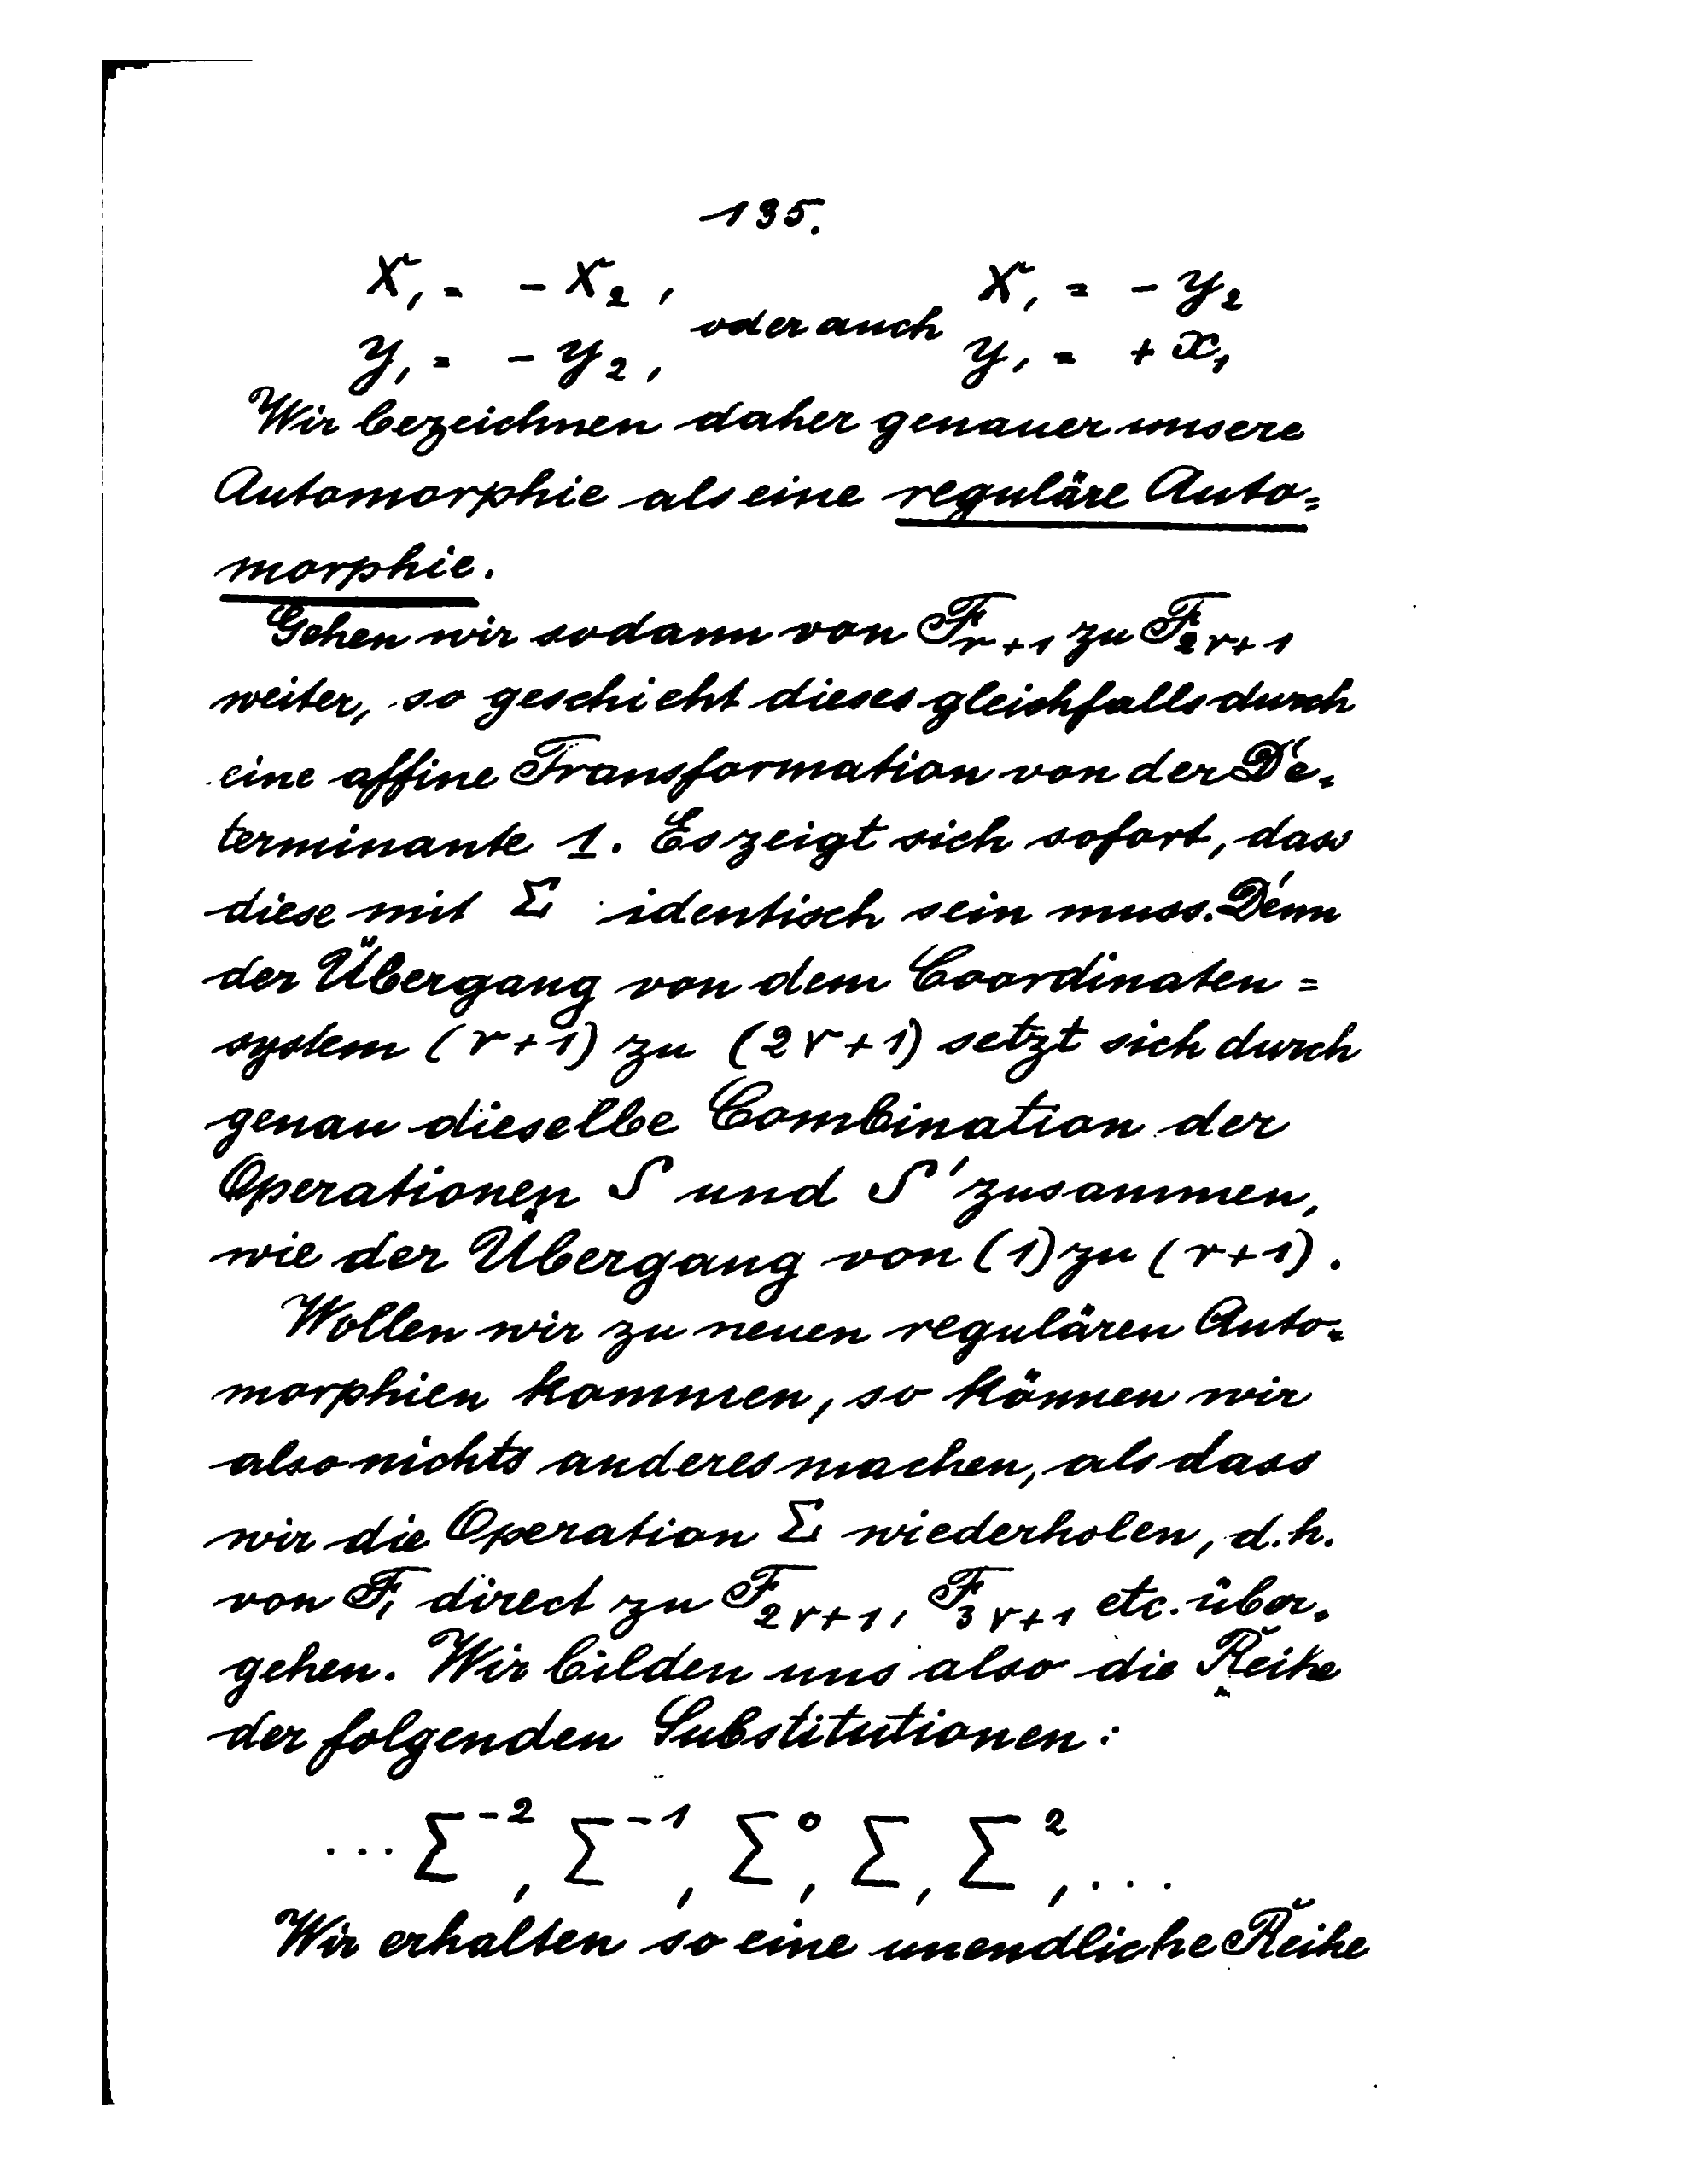 135.
x₁ = - x₂, oder auch x₁ = - y₂
y₁ = - y₂, y₁ = + x₁
Wir bezeichnen daher genauer unsere
Automorphie als eine reguläre Auto=
morphie.
Gehen wir sodann von F_{r+1} zu F_{2r+1}
weiter, so geschieht dieses gleichfalls durch
eine affine Transformation von der De=
terminante 1. Es zeigt sich sofort, dass
diese mit Σ identisch sein muss. Denn
der Übergang von dem Coordinaten=
system (r+1) zu (2r+1) setzt sich durch
genau dieselbe Combination der
Operationen S und S' zusammen,
wie der Übergang von (1) zu (r+1).
Wollen wir zu neuen regulären Auto=
morphien kommen, so können wir
also nichts anderes machen, als dass
wir die Operation Σ wiederholen, d.h.
von F₁ direct zu F_{2r+1}, F_{3r+1} etc. über=
gehen. Wir bilden uns also die Reihe
der folgenden Substitutionen:
... Σ⁻², Σ⁻¹, Σ⁰, Σ, Σ², ...
Wir erhalten so eine unendliche Reihe